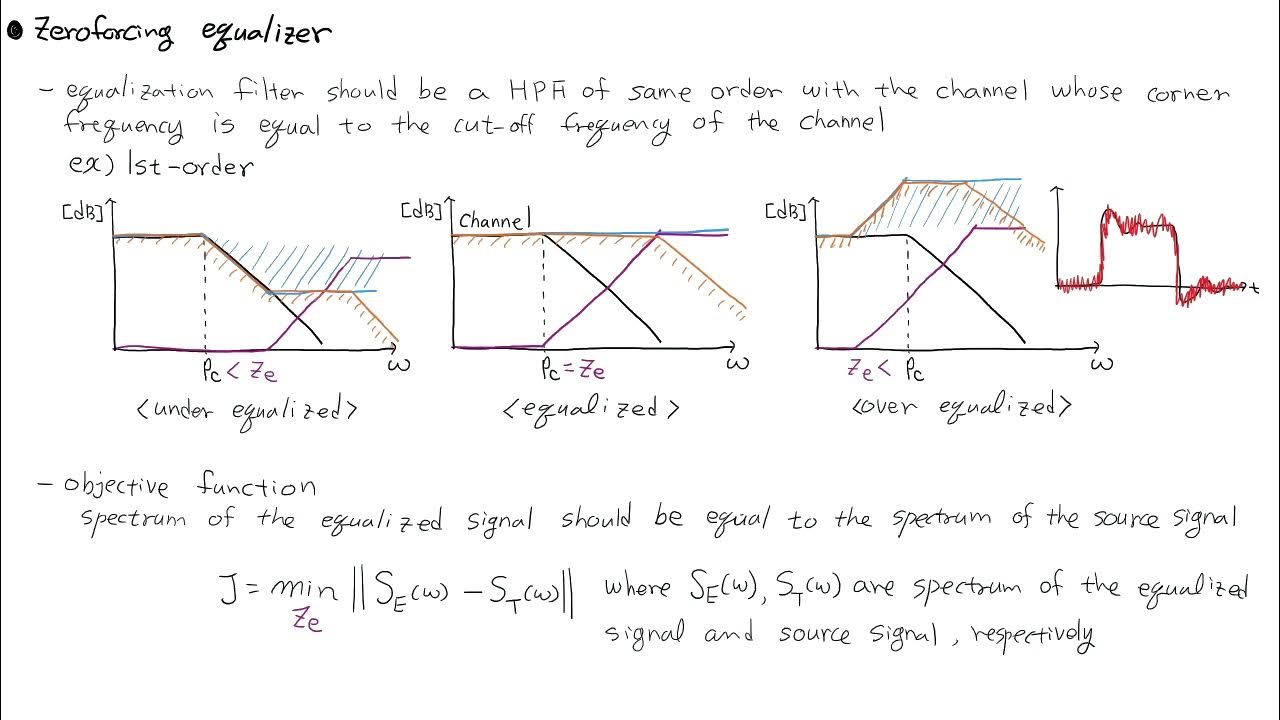 ● Zeroforcing equalizer
- equalization filter should be a HPF of same order with the channel whose corner
frequency is equal to the cut-off frequency of the channel
ex) 1st-order
[dB]
ω
Pc < Ze
<under equalized>
[dB]
Channel
ω
Pc = Ze
<equalized>
[dB]
ω
Ze < Pc
<over equalized>
t
- objective function
spectrum of the equalized signal should be equal to the spectrum of the source signal
J = min || S_E(ω) - S_T(ω) || where S_E(ω), S_T(ω) are spectrum of the equalized
Ze
signal and source signal, respectively